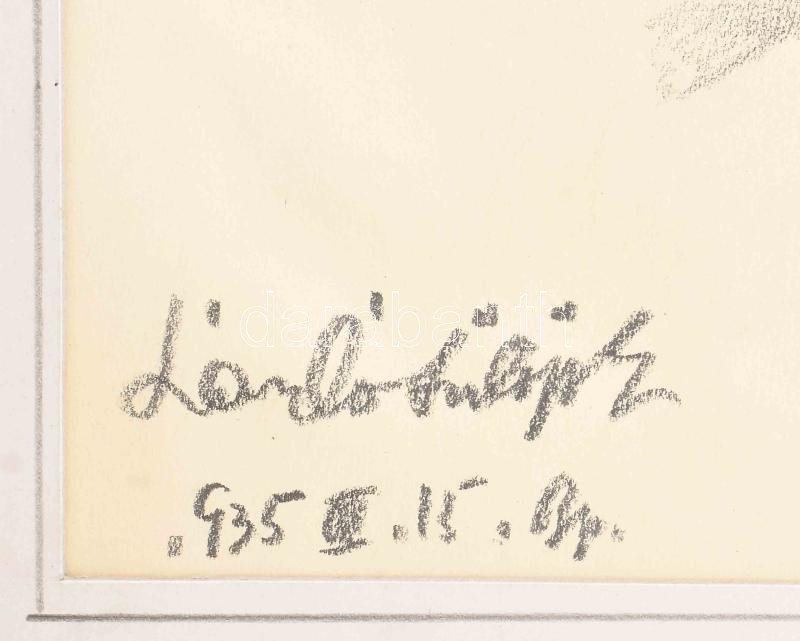 László Fülöp
.935 III.15. Bp.
darabanth